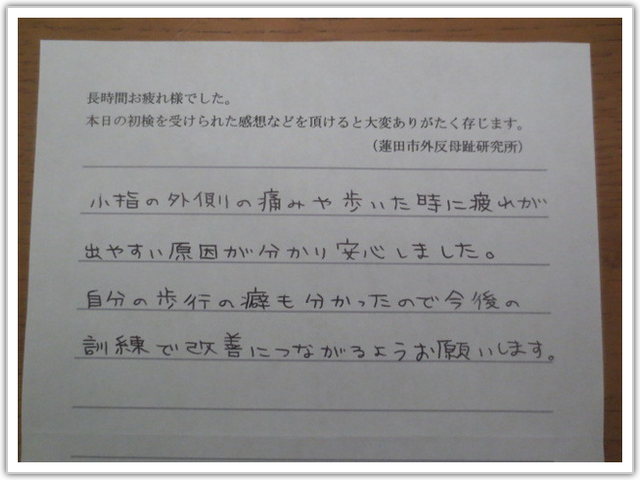 長時間お疲れ様でした。
本日の初検を受けられた感想などを頂けると大変ありがたく存じます。
（蓮田市外反母趾研究所）
小指の外側の痛みや歩いた時に疲れが
出やすい原因が分かり安心しました。
自分の歩行の癖も分かったので今後の
訓練で改善につながるようお願いします。